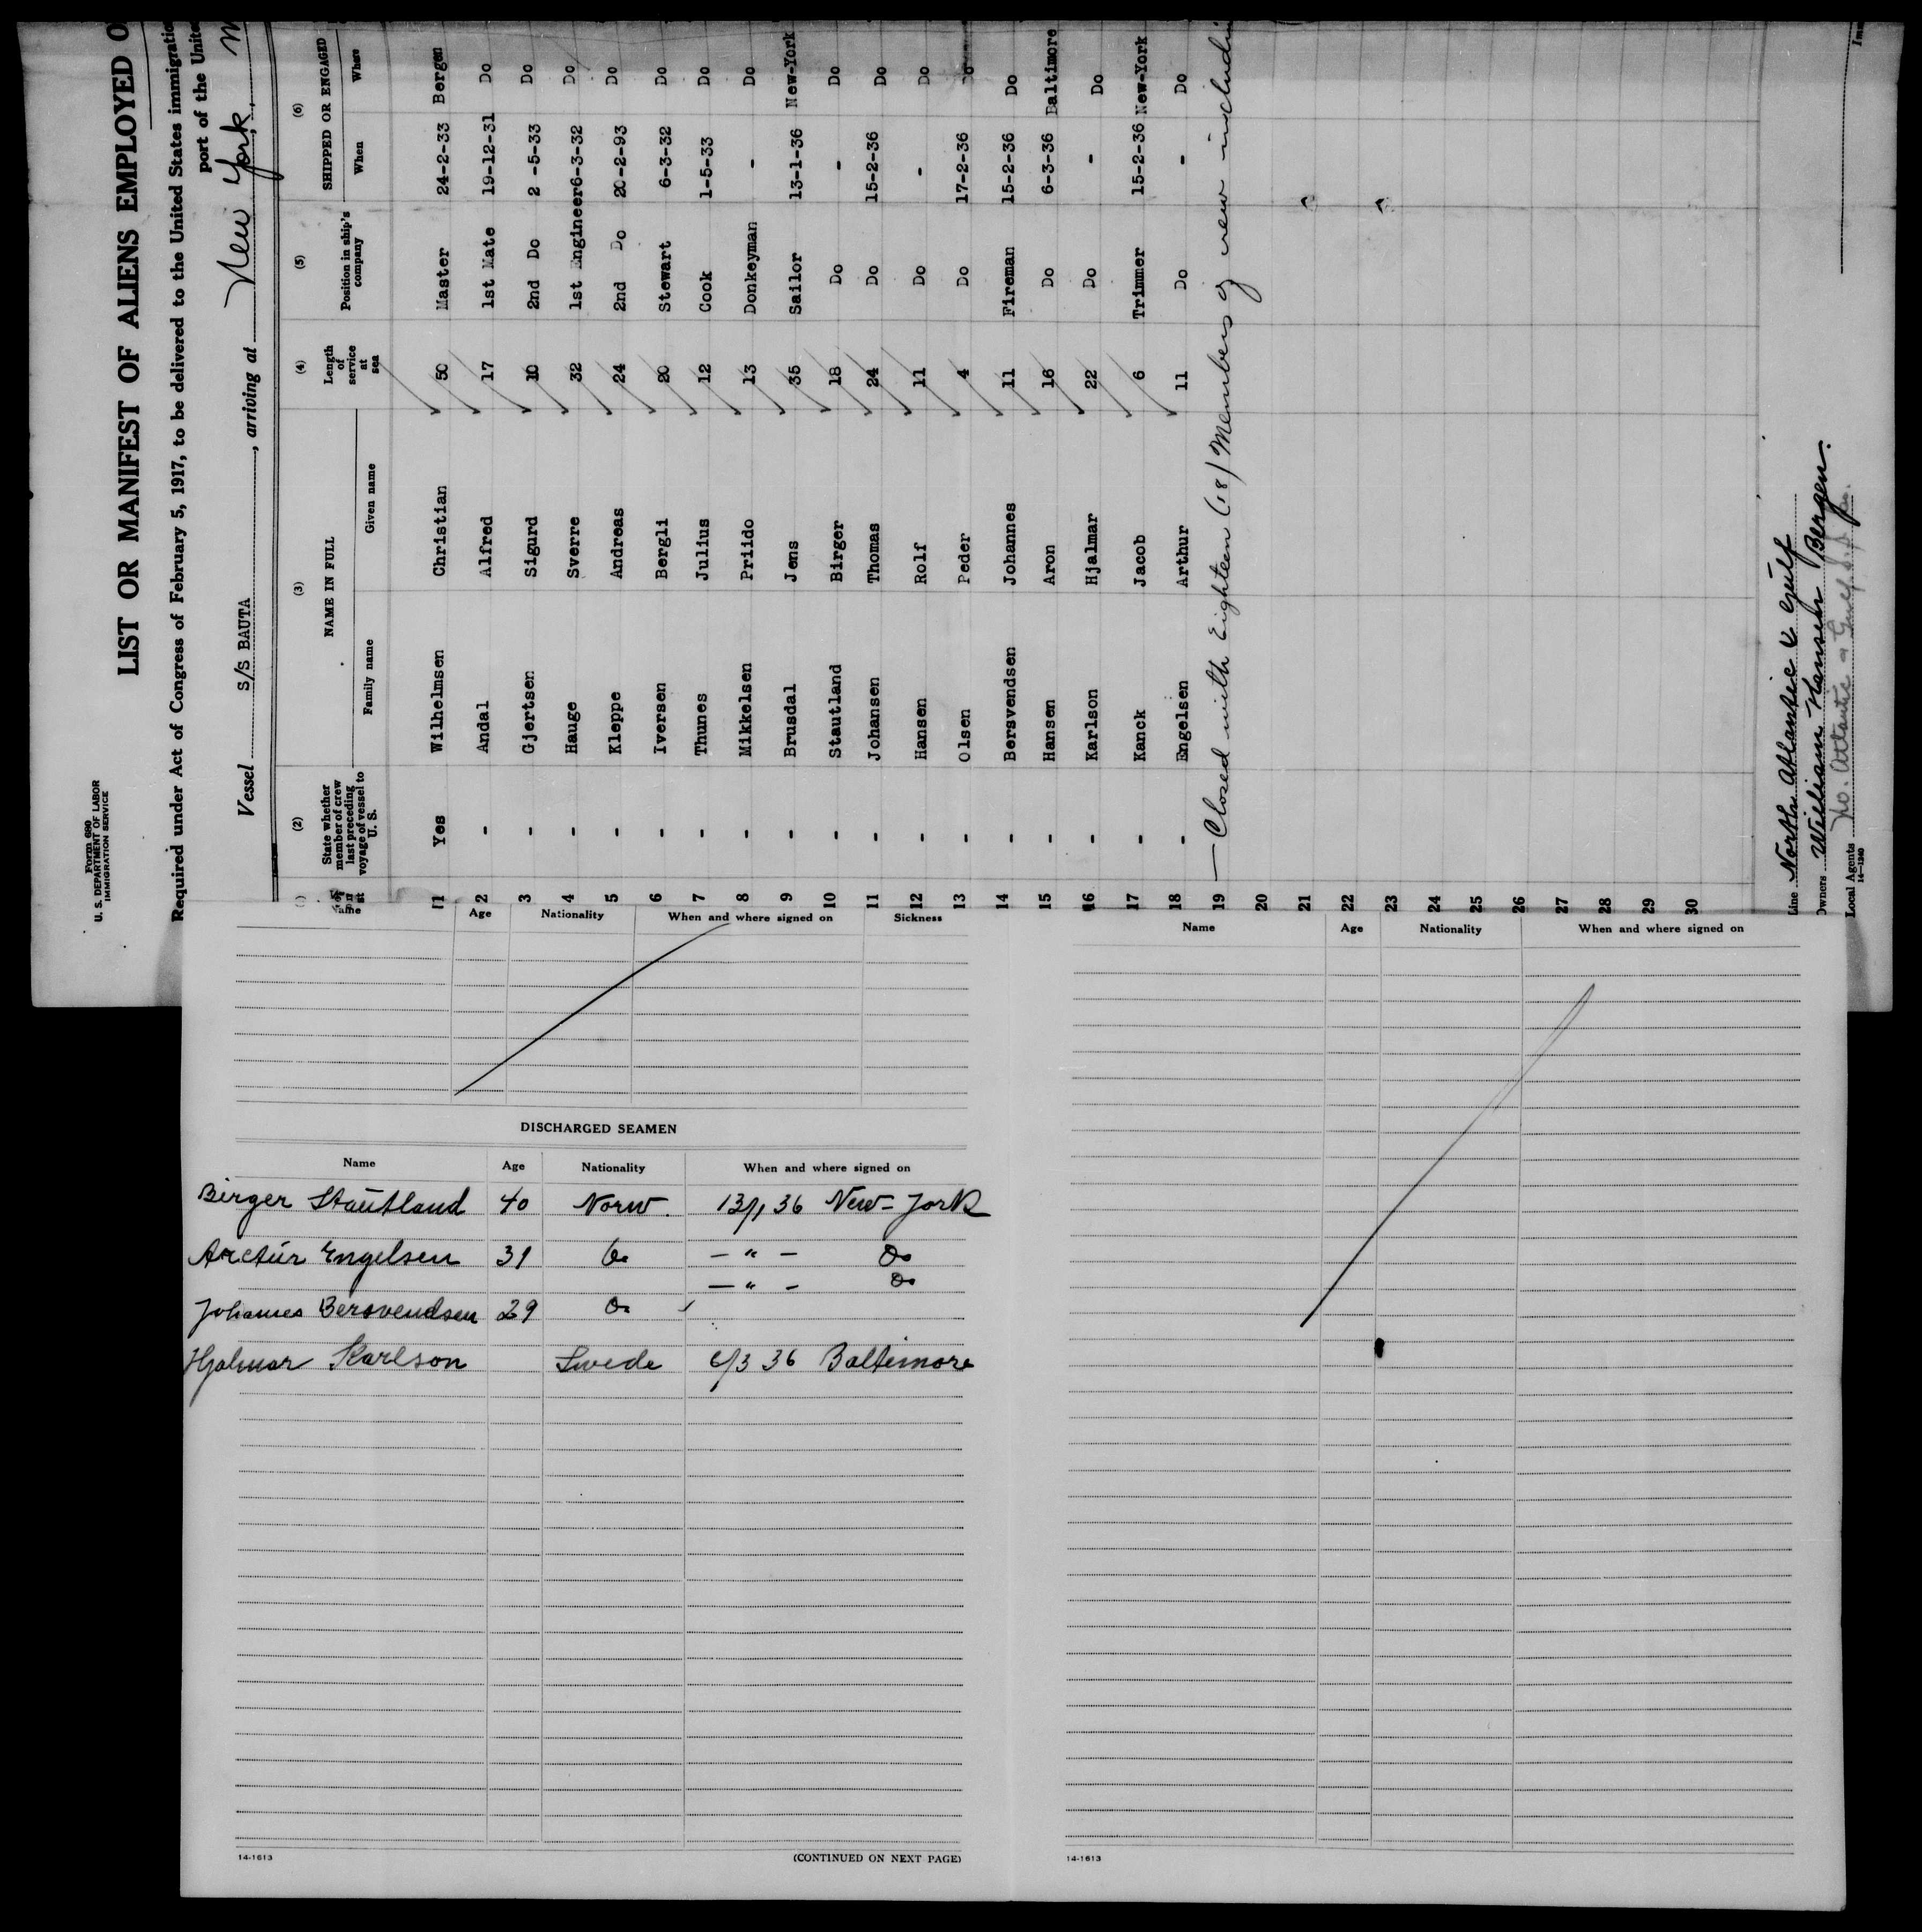 Form 680
U. S. DEPARTMENT OF LABOR
IMMIGRATION SERVICE
LIST OR MANIFEST OF ALIENS EMPLOYED O
Required under Act of Congress of February 5, 1917, to be delivered to the United States immigratio
port of the Unite
Vessel S/S BAUTA, arriving at New York,
(2) (3) (4) (5) (6)
State whether member of crew last preceding voyage of vessel to U. S. NAME IN FULL Length of service at sea Position in ship's company SHIPPED OR ENGAGED
Family name Given name When Where
1 Yes Wilhelmsen Christian 50 Master 24-2-33 Bergen
2 - Andal Alfred 17 1st Mate 19-12-31 Do
3 - Gjertsen Sigurd 10 2nd Do 2 -5-33 Do
4 - Hauge Sverre 32 1st Engineer 6-3-32 Do
5 - Kleppe Andreas 24 2nd Do 20-2-93 Do
6 - Iversen Bergli 20 Stewart 6-3-32 Do
7 - Thunes Julius 12 Cook 1-5-33 Do
8 - Mikkelsen Priido 13 Donkeyman - Do
9 - Brusdal Jens 35 Sailor 13-1-36 New-York
10 - Stautland Birger 18 Do - Do
11 - Johansen Thomas 24 Do 15-2-36 Do
12 - Hansen Rolf 11 Do - Do
13 - Olsen Peder 4 Do 17-2-36 Do
14 - Bersvendsen Johannes 11 Fireman 15-2-36 Do
15 - Hansen Aron 16 Do 6-3-36 Baltimore
16 - Karlson Hjalmar 22 Do - Do
17 - Kanck Jacob 6 Trimmer 15-2-36 New-York
18 - Engelsen Arthur 11 Do - Do
19 — Closed with Eighteen (18) Members of crew includin
20
21
22
23
24
25
26
27
28
29
30
Line North Atlantic & Gulf
Owners William Hansen Bergen.
Local Agents No. Atlantic & Gulf S.S.
14-1240
Age Nationality When and where signed on Sickness
DISCHARGED SEAMEN
Name Age Nationality When and where signed on
Birger Stautland 40 Norw. 13/1 36 New-York
Arctur Engelsen 31 Do — " — Do
— " — Do
Johannes Bersvendsen 29 Do
Hjalmar Karlson Swede 6/3 36 Baltimore
14-1613 (CONTINUED ON NEXT PAGE)
Name Age Nationality When and where signed on
14-1613